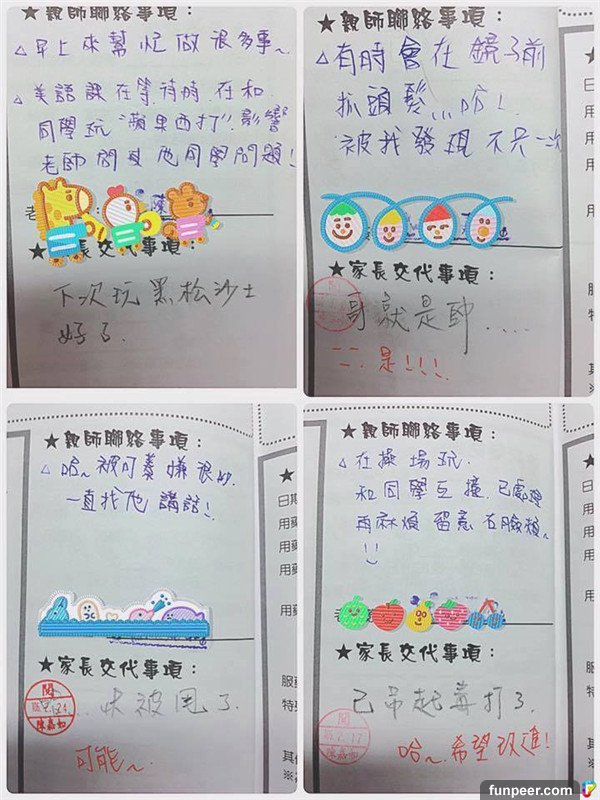 ★親師聯絡事項：
△早上來幫忙做很多事~
△美語課在等待時在和
同學玩"蘋果西打"影響
老師問其他同學問題！
★家長交代事項：
下次玩黑松沙士
好了.
★親師聯絡事項：
△有時會在鏡子前
抓頭髮,,,,哈！
被我發現不只一次
★家長交代事項：
哥就是帥....
是!!!
★親師聯絡事項：
△哈~被可蓁嫌很吵.
一直找他講話！
★家長交代事項：
快被甩了.
閱
可能~
★親師聯絡事項：
△在操場玩.
和同學互撞.已處理
再麻煩留意右臉頰~
!!
★家長交代事項：
已吊起毒打了.
閱
哈~希望改進！
日期
用藥
用藥
用藥
服藥
特殊
其他
funpeer.com